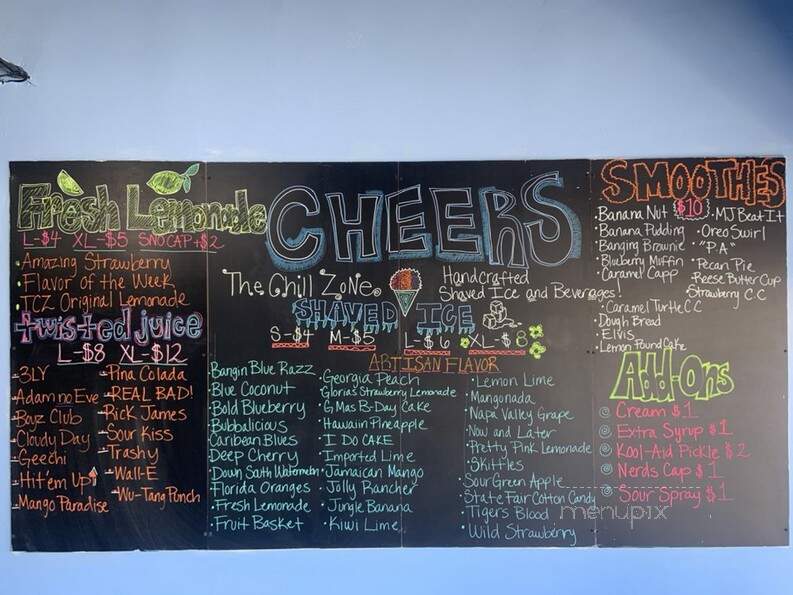 Fresh Lemonade
L-$4 XL-$5 SNOCAP+$2
Amazing Strawberry
Flavor of the Week
TCZ Original Lemonade
twisted juice
L-$8 XL-$12
3LY
Adam no Eve
Boyz Club
Cloudy Day
Geechi
Hit'em Up
Mango Paradise
Pina Colada
REAL BAD!
Rick James
Sour Kiss
Trashy
Wall-E
Wu-Tang Punch
CHEERS
The Chill Zone
Handcrafted
Shaved Ice and Beverages!
SHAVED ICE
S-$4 M-$5 L-$6 XL-$8
ARTISAN FLAVOR
Bangin Blue Razz
Blue Coconut
Bold Blueberry
Bubbalicious
Caribean Blues
Deep Cherry
Down South Watermelon
Florida Oranges
Fresh Lemonade
Fruit Basket
Georgia Peach
Glorias Strawberry Lemonade
G Mas B-Day Cake
Hawaiin Pineapple
I DO CAKE
Imported Lime
Jamaican Mango
Jolly Rancher
Jungle Banana
Kiwi Lime
Lemon Lime
Mangonada
Napa Valley Grape
Now and Later
Pretty Pink Lemonade
Skittles
Sour Green Apple
State Fair Cotton Candy
Tigers Blood
Wild Strawberry
SMOOTHES
$10
Banana Nut
Banana Pudding
Banging Brownie
Blueberry Muffin
Caramel Capp
Caramel Turtle CC
Dough Bread
Elvis
Lemon Pound Cake
MJ Beat It
Oreo Swirl
"P.A"
Pecan Pie
Reese Butter Cup
Strawberry C.C
Add-Ons
Cream $1
Extra Syrup $1
Kool-Aid Pickle $2
Nerds Cap $1
Sour Spray $1
menupix